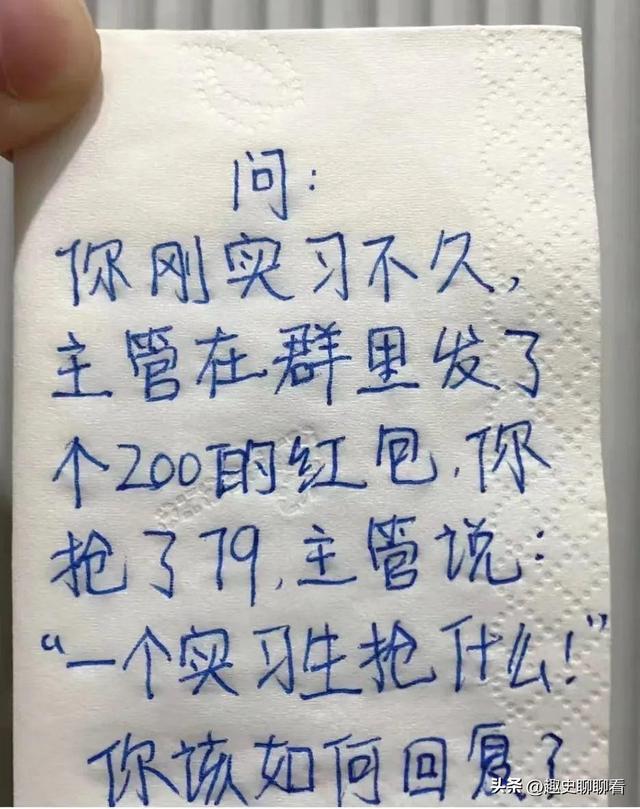 问:
你刚实习不久,
主管在群里发了
个200的红包,你
抢了79,主管说:
“一个实习生抢什么!”
你该如何回复?
头条 @趣史聊聊看